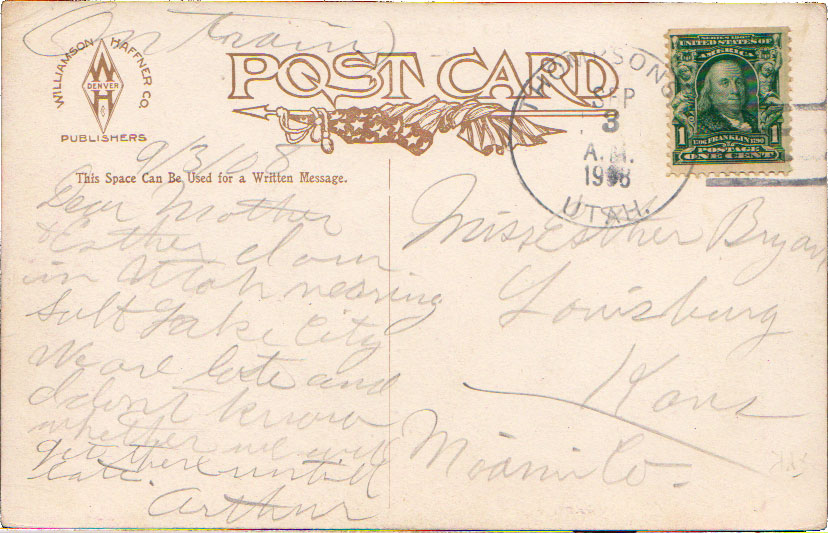 On train
WILLIAMSON HAFFNER CO.
W
DENVER
H
PUBLISHERS
POST CARD
THOMPSONS
SEP
3
A.M.
1908
UTAH.
SERIES 1902
UNITED STATES OF
AMERICA
1706 FRANKLIN 1790
1 POSTAGE 1
ONE CENT
9/3/08
This Space Can Be Used for a Written Message.
Dear Mother
& Esther I am
in Utah nearing
Salt Lake City
We are late and
I dont know
whether we will
get there untill
late.
Arthur
Miss Esther Bryan
Louisburg
Kans
Miami Co.